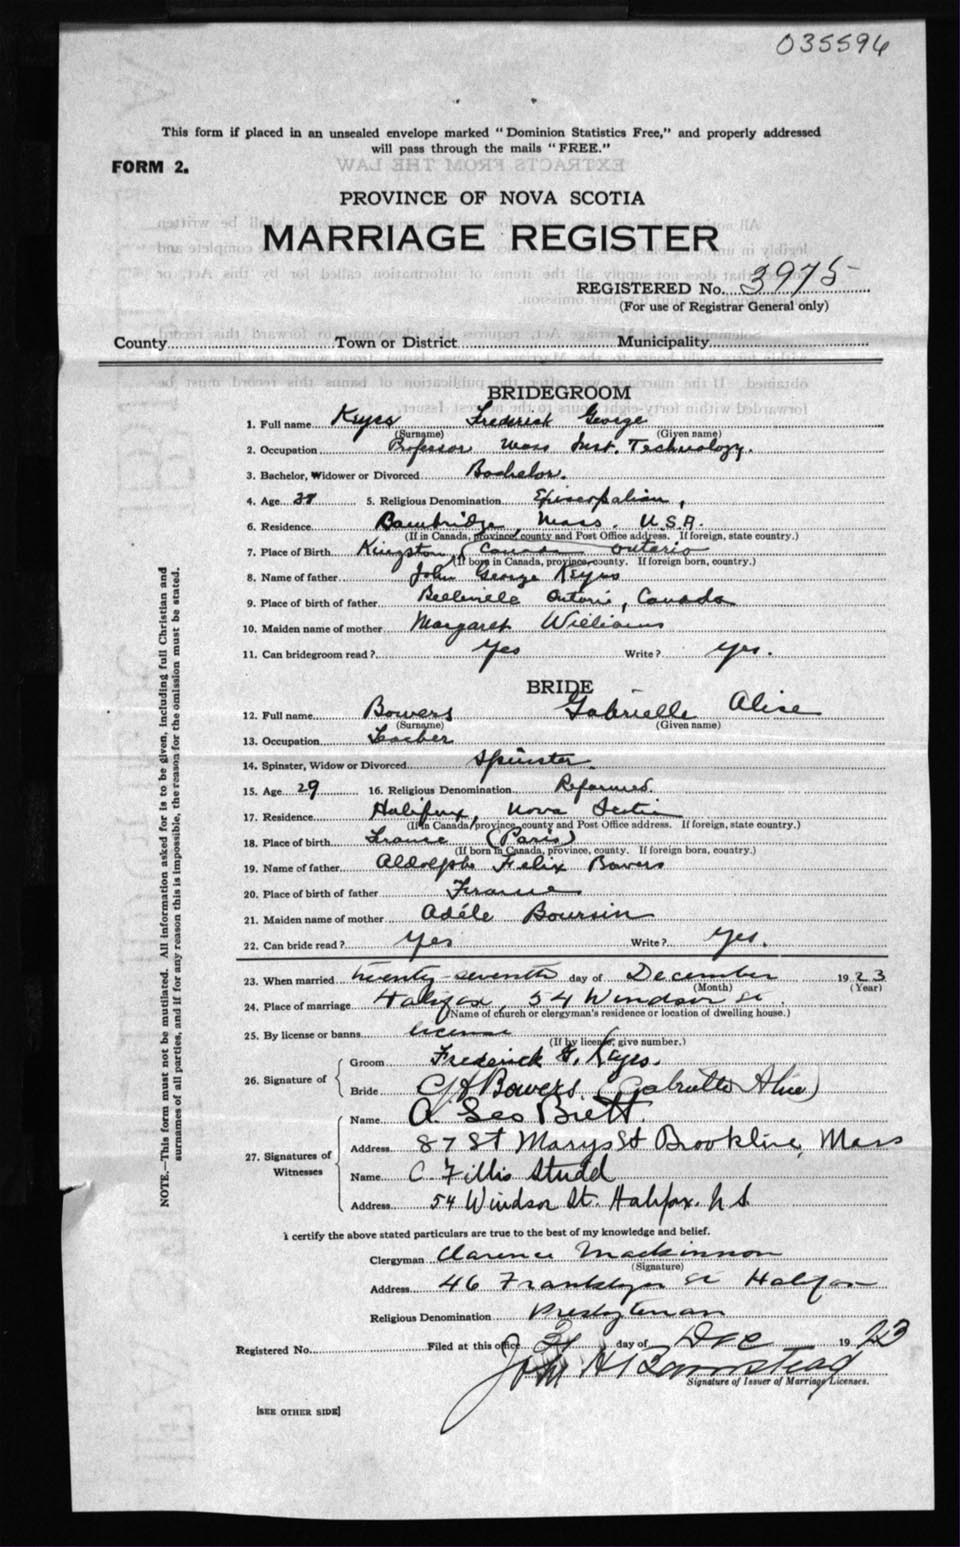 035596
This form if placed in an unsealed envelope marked "Dominion Statistics Free," and properly addressed
will pass through the mails "FREE."
FORM 2.
PROVINCE OF NOVA SCOTIA
MARRIAGE REGISTER
REGISTERED No. 3975
(For use of Registrar General only)
County Town or District Municipality
BRIDEGROOM
1. Full name Keyes Frederick George
(Surname) (Given name)
2. Occupation Professor Mass Inst. Technology.
3. Bachelor, Widower or Divorced Bachelor.
4. Age 38 5. Religious Denomination Episcopalian,
6. Residence Cambridge, Mass. U.S.A.
(If in Canada, province, county and Post Office address. If foreign, state country.)
7. Place of Birth Kingston, Canada Ontario
(If born in Canada, province, county. If foreign born, country.)
8. Name of father John George Keyes
9. Place of birth of father Belleville Ontario, Canada
10. Maiden name of mother Margaret Williams
11. Can bridegroom read? Yes Write? yes.
BRIDE
12. Full name Bowers Gabrielle Alise
(Surname) (Given name)
13. Occupation Teacher
14. Spinster, Widow or Divorced Spinster.
15. Age 29 16. Religious Denomination Reformed.
17. Residence Halifax, Nova Scotia
(If in Canada, province, county and Post Office address. If foreign, state country.)
18. Place of birth France (Paris)
(If born in Canada, province, county. If foreign born, country.)
19. Name of father Aldolphe Felix Bowers
20. Place of birth of father France
21. Maiden name of mother Adéle Boursin
22. Can bride read? Yes Write? Yes.
23. When married twenty-seventh day of December 1923
(Month) (Year)
24. Place of marriage Halifax, 54 Windsor St.
(Name of church or clergyman's residence or location of dwelling house.)
25. By license or banns license
(If by license, give number.)
26. Signature of
Groom Frederick G. Keyes.
Bride G A Bowers (Gabrielle Alise)
27. Signatures of Witnesses
Name A. Geo Brett
Address 87 St Marys St Brookline, Mass
Name C Fillis Studd
Address 54 Windsor St. Halifax. N S.
I certify the above stated particulars are true to the best of my knowledge and belief.
Clergyman Clarence Mackinnon
(Signature)
Address 46 Franklyn St Halifax
Religious Denomination Presbyterian
Registered No. Filed at this office day of Dec 1923
John H Barnstead
Signature of Issuer of Marriage Licenses.
[SEE OTHER SIDE]
NOTE.—This form must not be mutilated. All information asked for is to be given, including full Christian and
surnames of all parties, and if for any reason this is impossible, the reason for the omission must be stated.